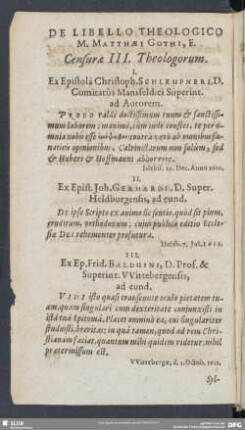 DE LIBELLO THEOLOGICO
M. MATTHÆI GOTHI, E.
Censuræ III. Theologorum.
I.
Ex Epistolâ Christoph. SCHLEUPNERI, D.
Comitatûs Mansfeldici Superint.
ad Autorem.
PROBO valdè doctissimum tuum & sanctissi-
mum laborem; maximè, cùm inde constet, te per o-
mnia nobis esse & verò ab omnibus fa-
naticis opinionibus, Calvinistarum non solùm, sed
& Huberi & Hoffmanni abhorrere.
Islebii, 19. Dec. Anno
II.
Ex Epist. Joh. GERHARDI, D. Super.
Heldborgensis, ad eund.
DE ipso Scripto ex animo sic sentio, quod sit pium,
eruditum, orthodoxum; cujus publica editio Ecclesiæ
DEI vehementer profutura.
7. Jul.
III.
Ex Ep. Frid. BALDUINI, D. Prof. &
Superint. VVittebergensis,
ad eund.
VIDI isto quasi transeunte oculo pietatem tu-
am, quam singulari cum dexteritate conjunxisti in
istâ tuâ Epitomâ. Placet omninò ea, cui singulariter
studuisti, brevitas; in quâ tamen, quod ad rem Chri-
stianam faciat, quantum mihi quidem videtur, nihil
prætermissum est.
VVitteberga, d. 1. Octob.